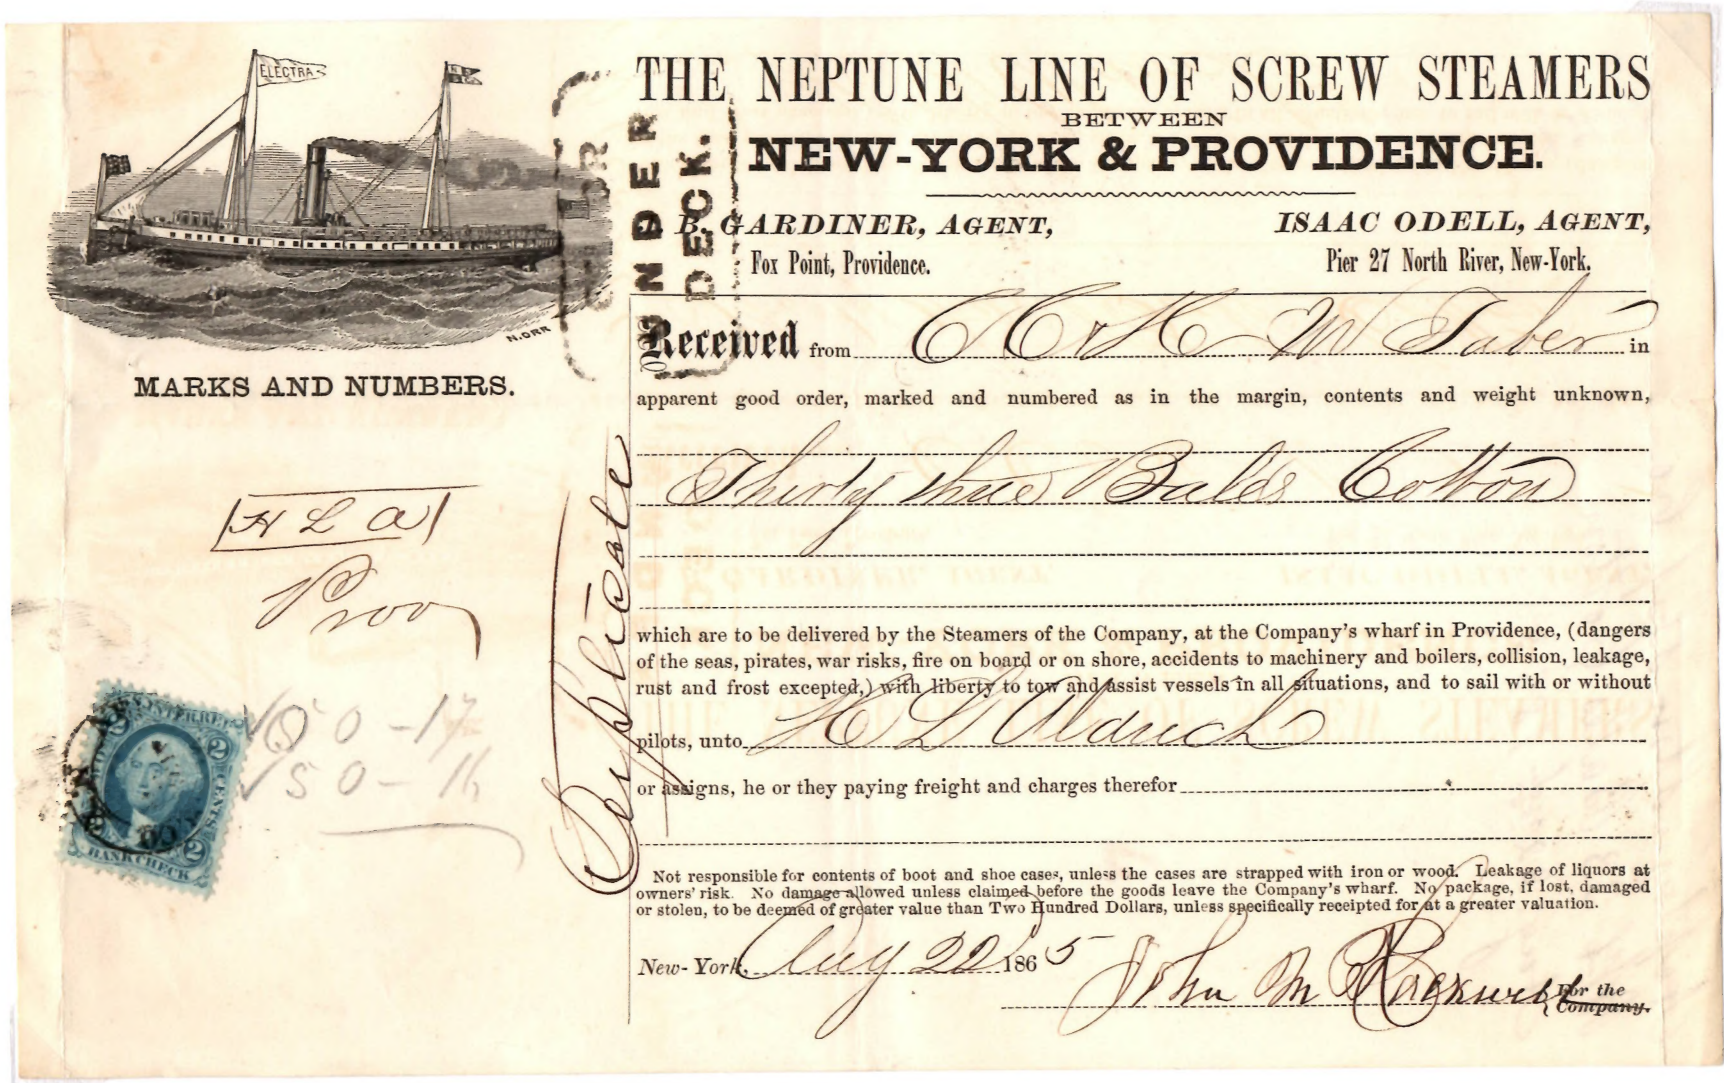 ELECTRA
N. ORR
MARKS AND NUMBERS.
H L A
Prov
50-17
50-16
U.S. INTER. REV.
2 2
CENTS
BANK CHECK
2 2
Duplicate
OR
UNDER
DECK.
THE NEPTUNE LINE OF SCREW STEAMERS
BETWEEN
NEW-YORK & PROVIDENCE.
B. GARDINER, AGENT,
Fox Point, Providence.
ISAAC ODELL, AGENT,
Pier 27 North River, New-York.
Received from C C & H W Taber in
apparent good order, marked and numbered as in the margin, contents and weight unknown,
Thirty three Bales Cotton
which are to be delivered by the Steamers of the Company, at the Company's wharf in Providence, (dangers
of the seas, pirates, war risks, fire on board or on shore, accidents to machinery and boilers, collision, leakage,
rust and frost excepted,) with liberty to tow and assist vessels in all situations, and to sail with or without
pilots, unto H L Aldrich
or assigns, he or they paying freight and charges therefor
Not responsible for contents of boot and shoe cases, unless the cases are strapped with iron or wood. Leakage of liquors at
owners' risk. No damage allowed unless claimed before the goods leave the Company's wharf. No package, if lost, damaged
or stolen, to be deemed of greater value than Two Hundred Dollars, unless specifically receipted for at a greater valuation.
New-York, Aug 22 1865
John M Rockwell For the
Company.